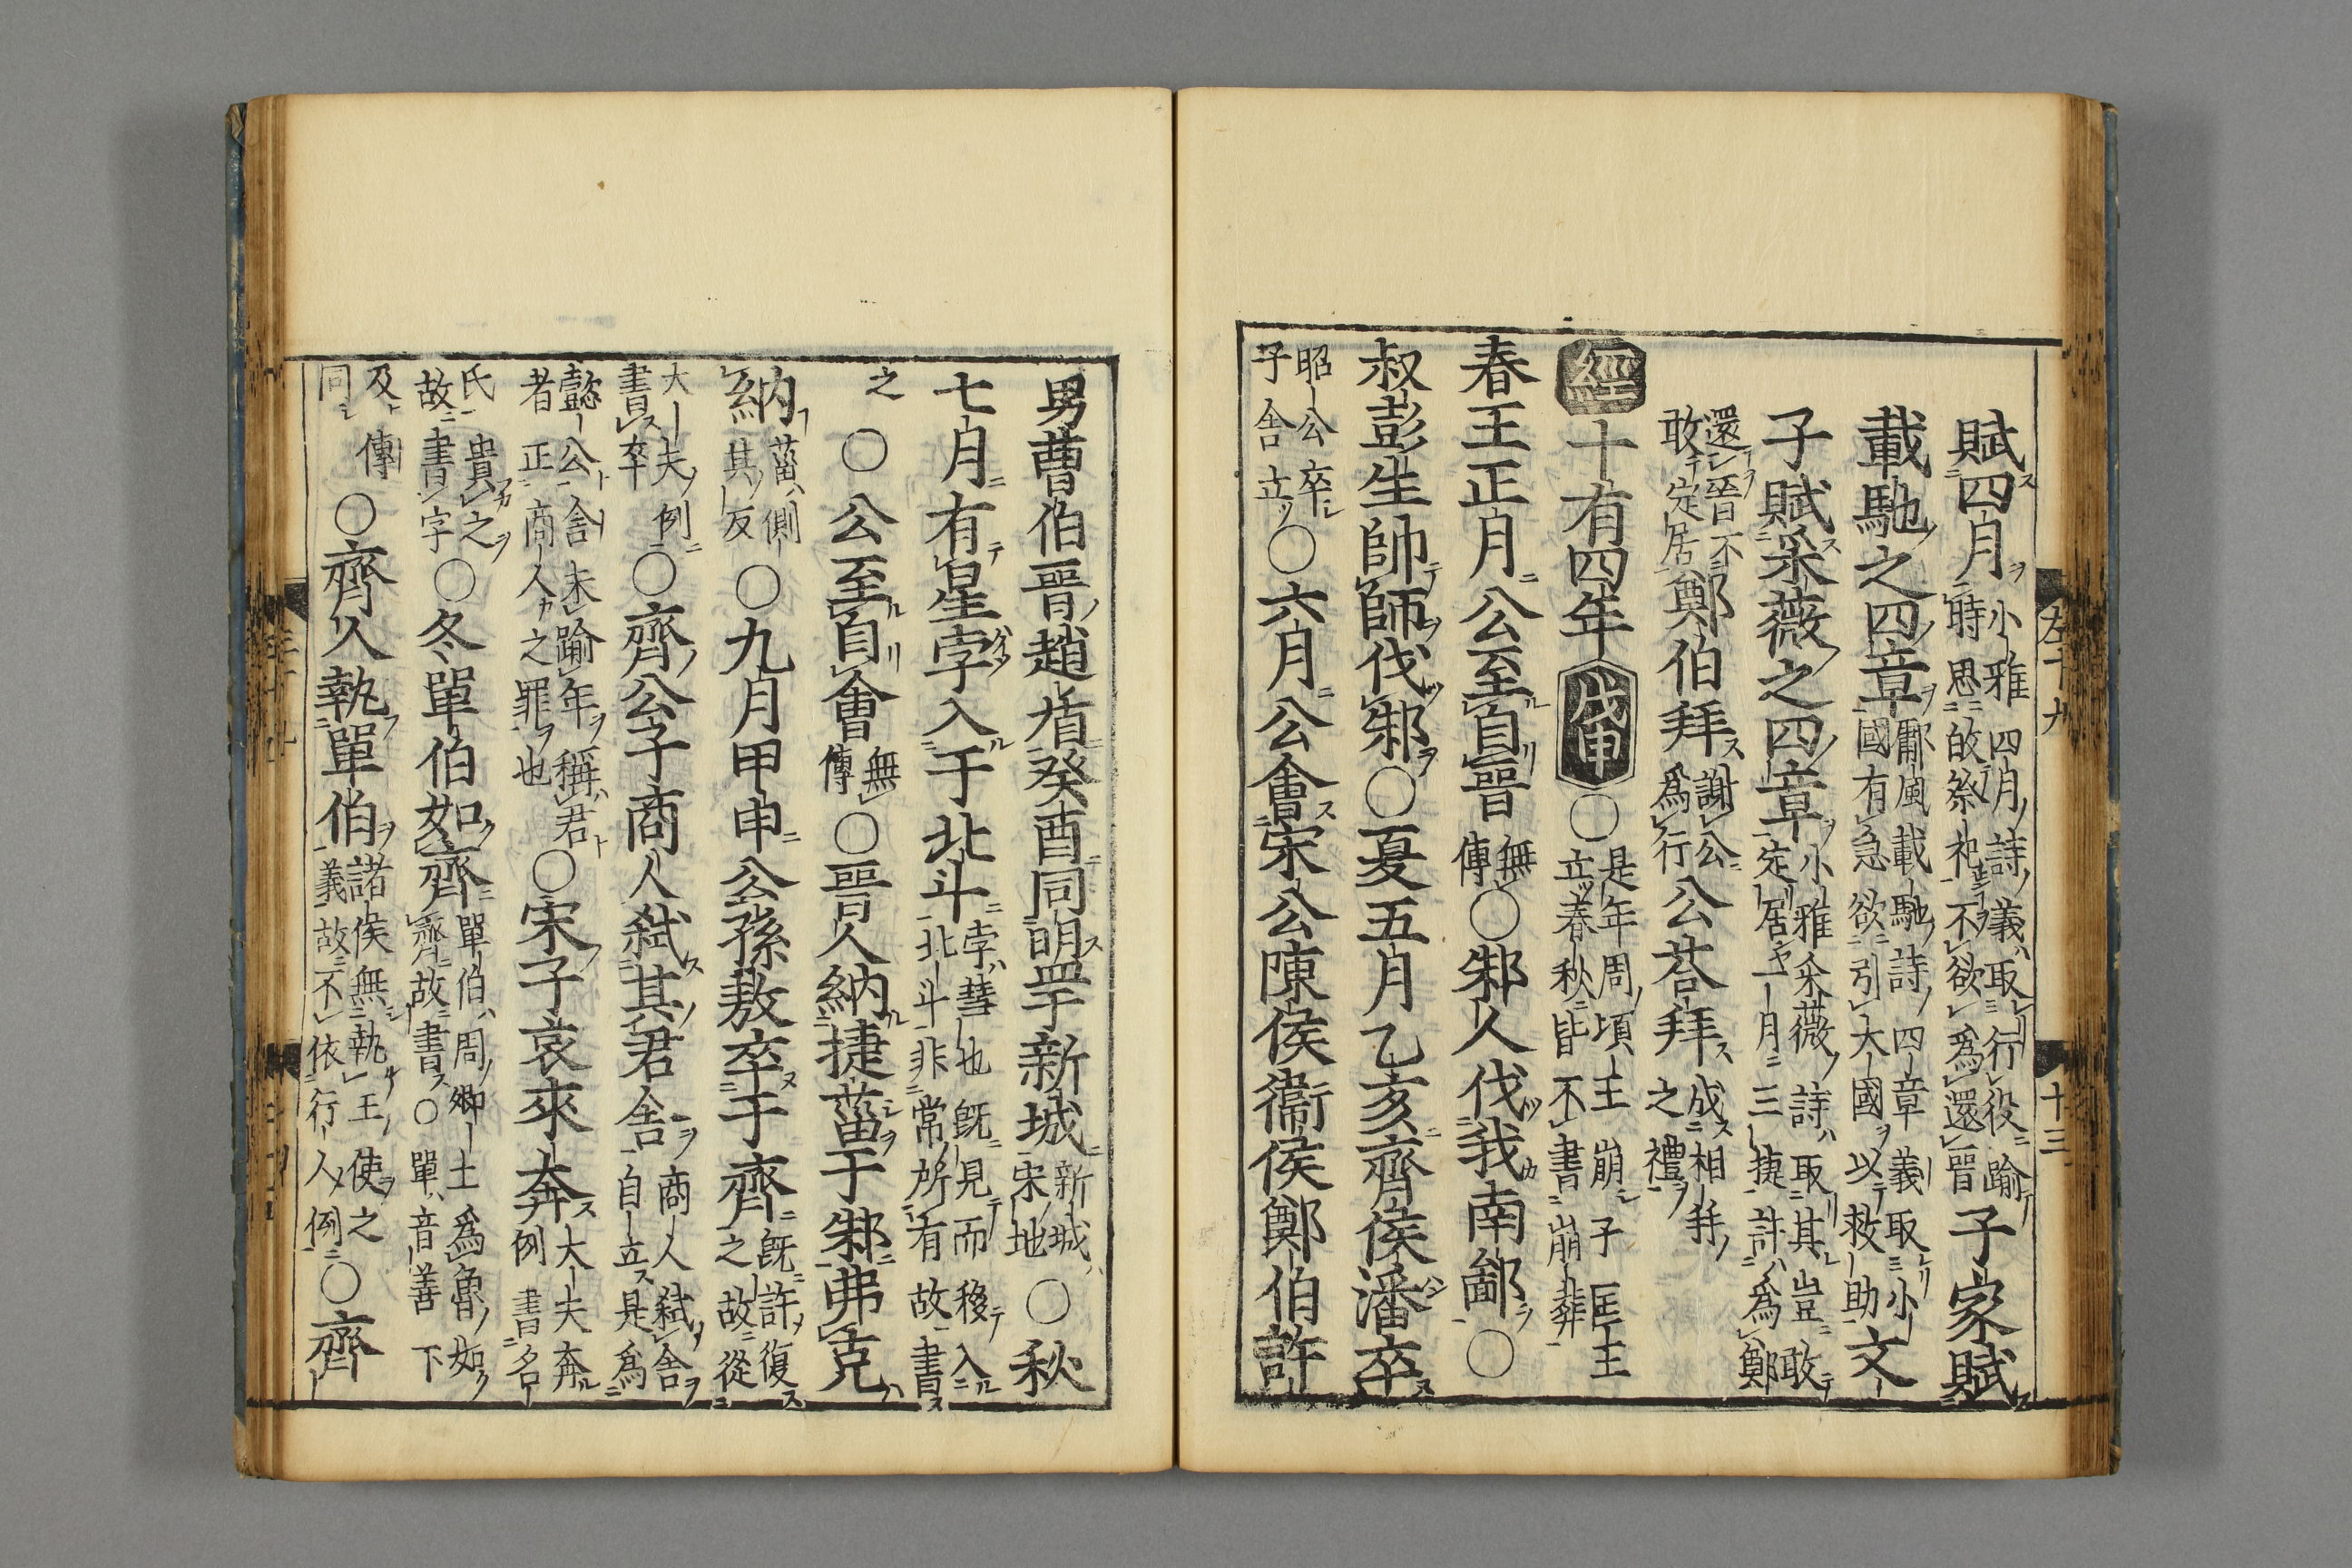 左十九 十三
賦四月小雅四月詩義取行役踰時思敀祭祀不欲爲還晉子家賦
載馳之四章鄘風載馳詩四章義取小國有急欲引大國以救助文
子賦采薇之四章小雅采薇詩取其豈敢定居一月三捷許爲鄭
還晉不敢定居鄭伯拜謝公爲行公荅拜成相拜之禮
經十有四年戊申○是年周頃王崩子匡王立春秋皆不書崩葬
春王正月公至自晉無傳○邾人伐我南鄙○
叔彭生帥師伐邾○夏五月乙亥齊侯潘卒
昭公卒子舍立○六月公會宋公陳侯衞侯鄭伯許
男曹伯晉趙盾癸酉同盟于新城新城宋地○秋
七月有星孛入于北斗孛彗也既見而移入北斗非常所有故書
之○公至自會無傳○晉人納捷菑于邾弗克
納菑側其反○九月甲申公孫敖卒于齊既許復之故從
大夫例書卒○齊公子商人弑其君舍商人弑舍自立是爲
懿公舍未踰年稱君者正商人之罪也○宋子哀來奔大夫奔例書名
氏貴之故書字○冬單伯如齊單伯周卿士爲魯如齊故書○單音善下
及傳同○齊人執單伯諸侯無執王使之義故不依行人例○齊